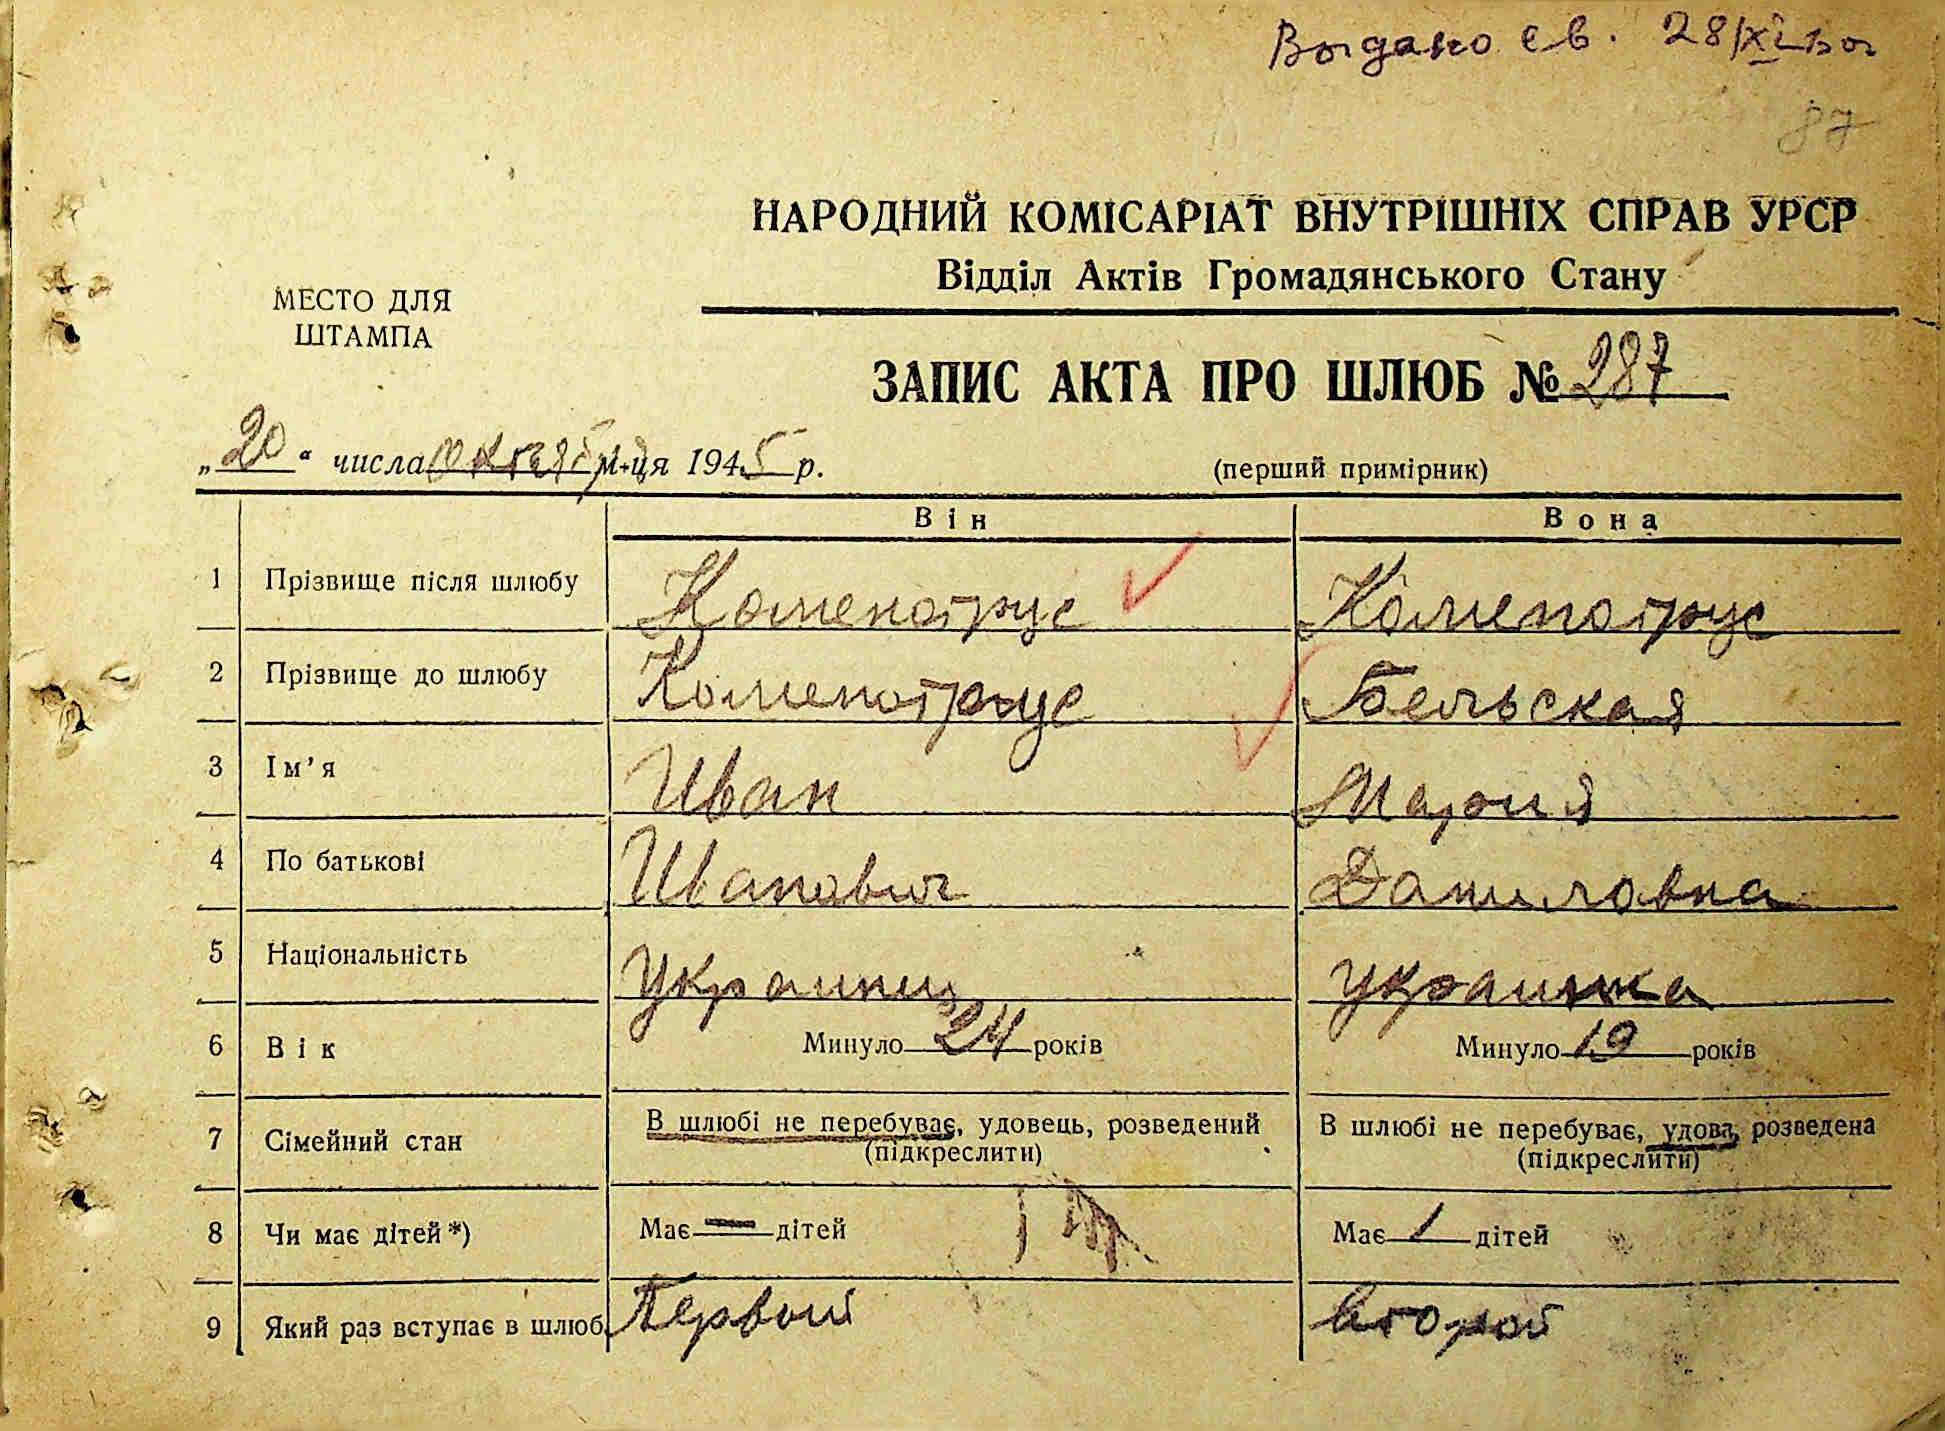 Выдано св. 28/XI
87
НАРОДНИЙ КОМІСАРІАТ ВНУТРІШНІХ СПРАВ УРСР
Відділ Актів Громадянського Стану
МЕСТО ДЛЯ
ШТАМПА
ЗАПИС АКТА ПРО ШЛЮБ № 287
„20“ числа октября м-ця 1945 р.
(перший примірник)
Він Вона
1 Прізвище після шлюбу Коменотрус Коменотрус
2 Прізвище до шлюбу Коменотрус Бельская
3 Ім'я Иван Мария
4 По батькові Иванович Даниловна
5 Національність Украинец украинка
6 Вік Минуло 24 років Минуло 19 років
7 Сімейний стан В шлюбі не перебуває, удовець, розведений (підкреслити) В шлюбі не перебуває, удова, розведена (підкреслити)
8 Чи має дітей*) Має — дітей Має 1 дітей
9 Який раз вступає в шлюб Первый второй